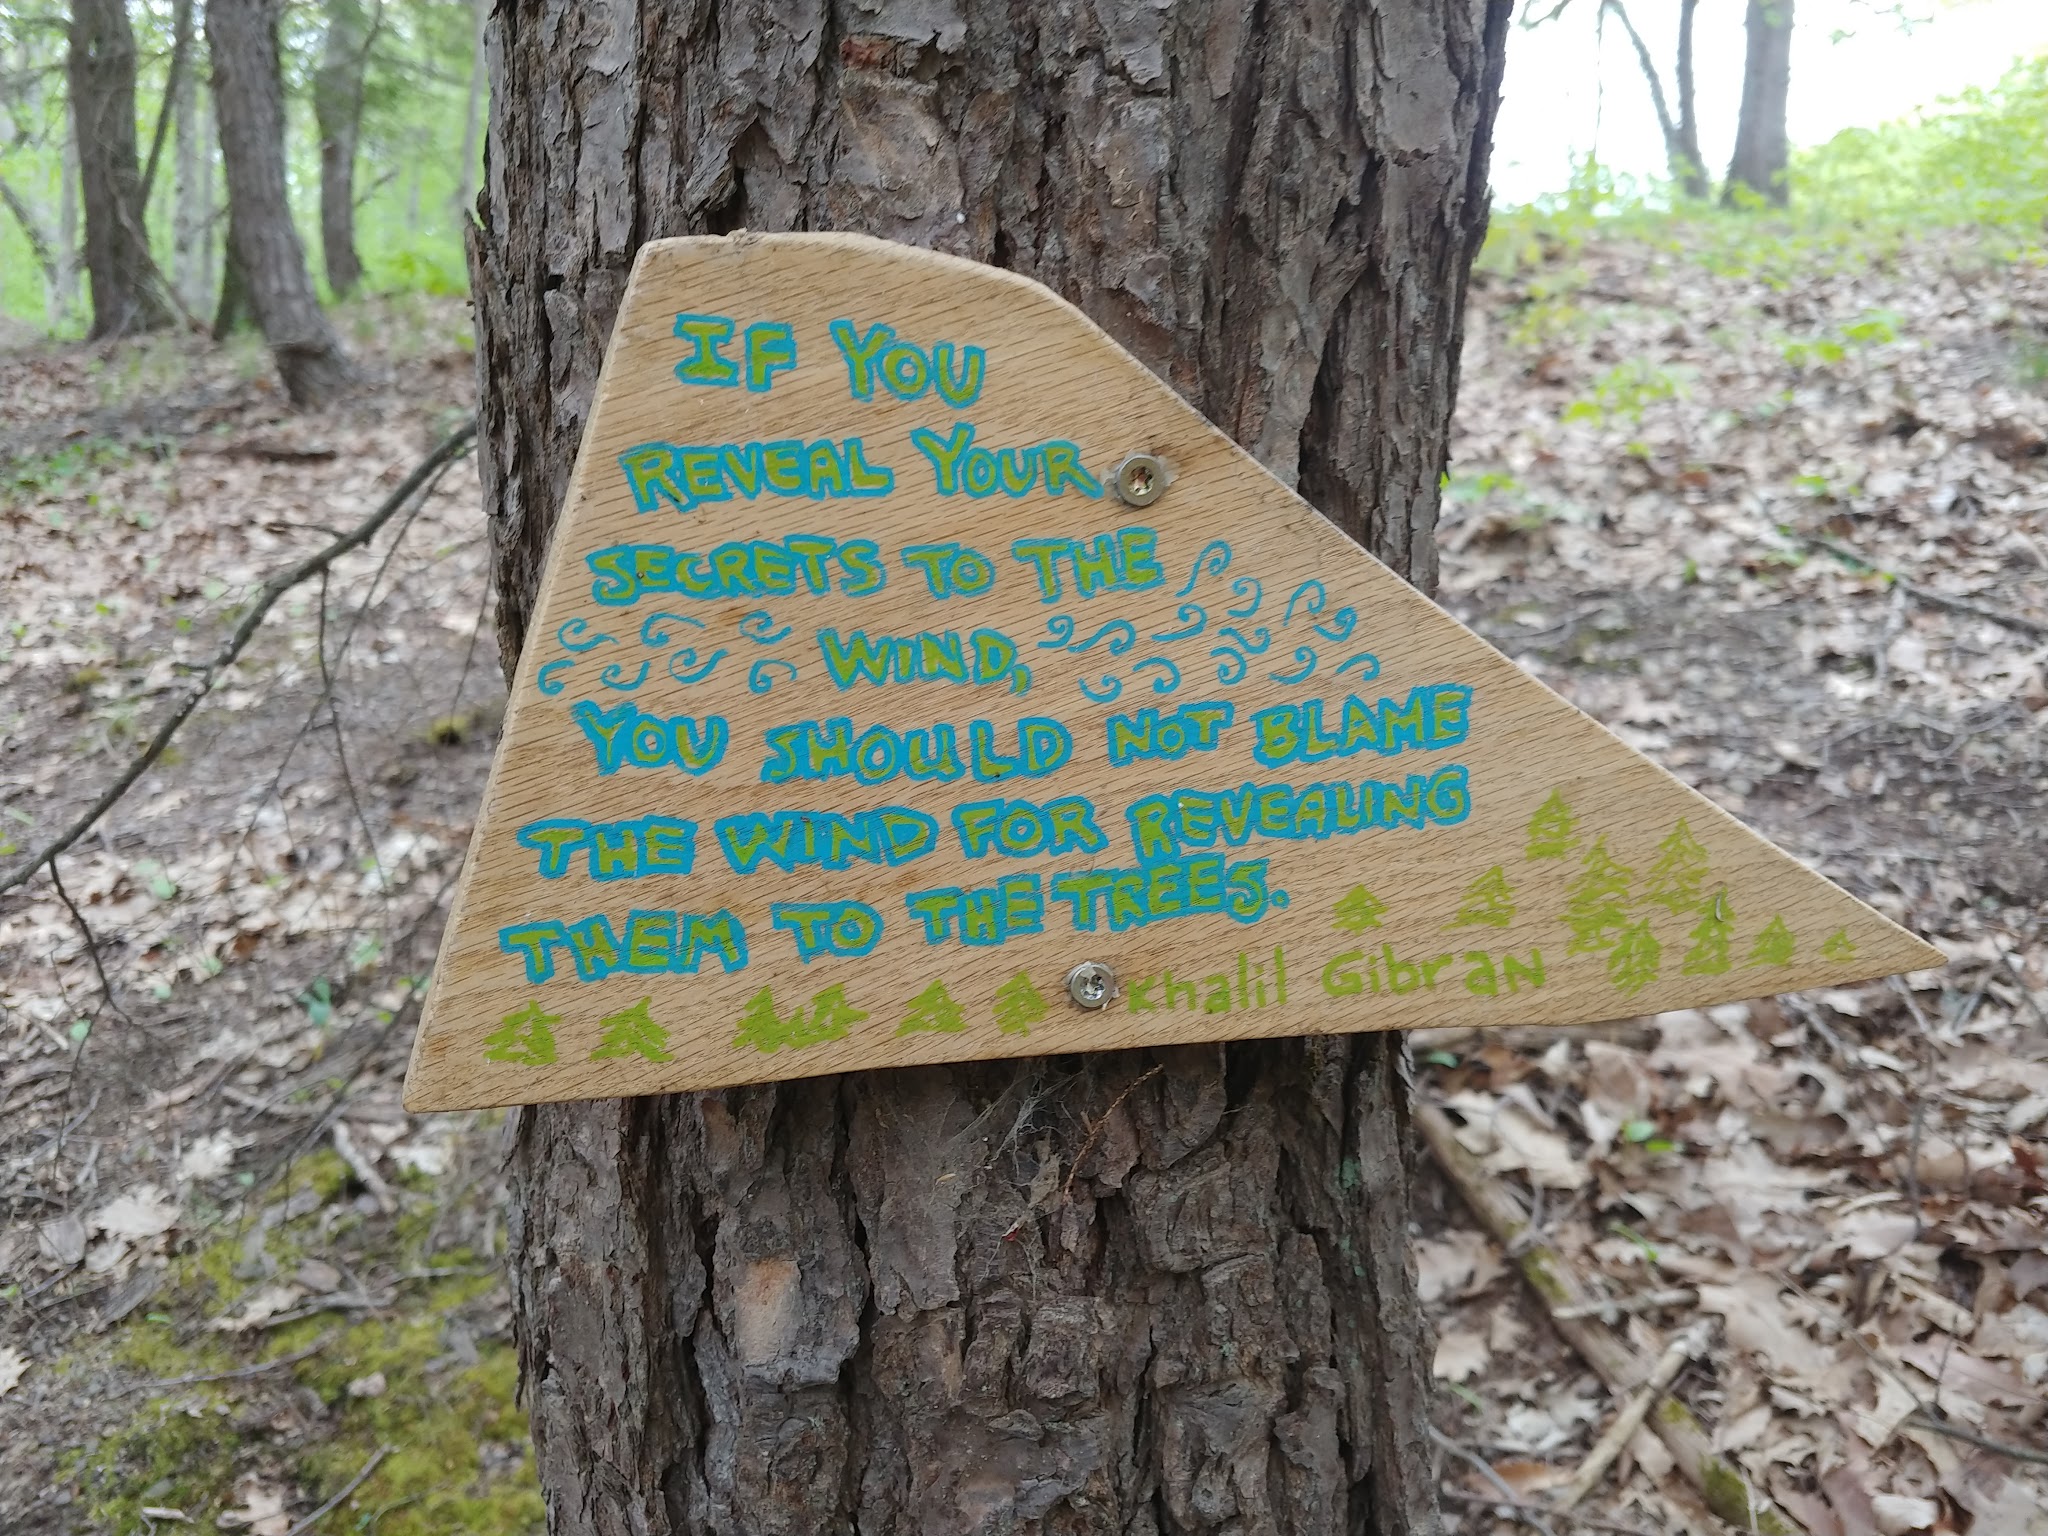 IF YOU
REVEAL YOUR
SECRETS TO THE
WIND,
YOU SHOULD NOT BLAME
THE WIND FOR REVEALING
THEM TO THE TREES.
Khalil Gibran